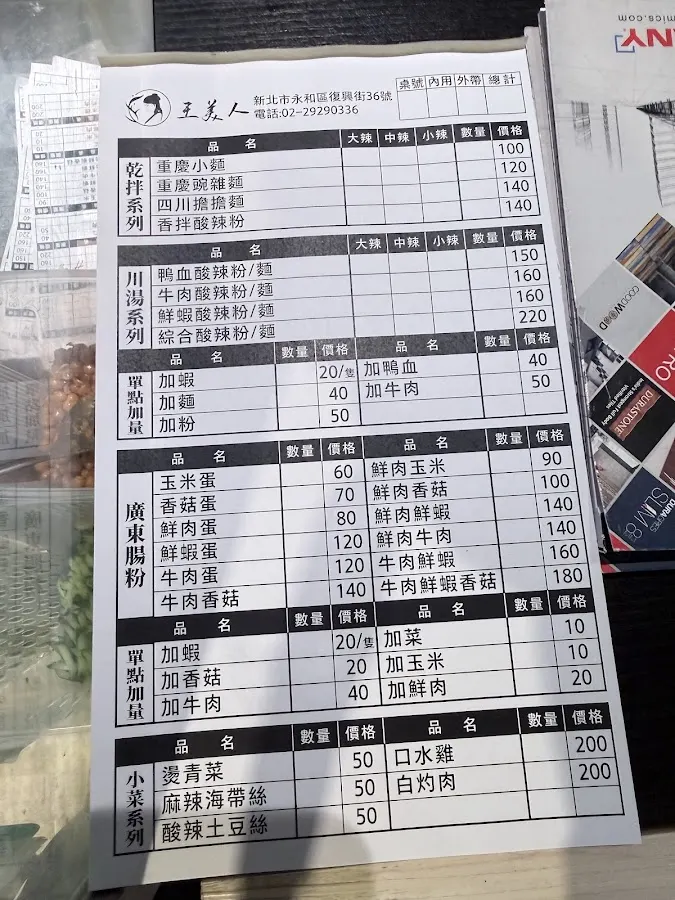 桌號 內用 外帶 總計
王美人
新北市永和區復興街36號
電話:02-29290336
乾拌系列
品名 大辣 中辣 小辣 數量 價格
重慶小麵 100
重慶豌雜麵 120
四川擔擔麵 140
香拌酸辣粉 140
川湯系列
品名 大辣 中辣 小辣 數量 價格
鴨血酸辣粉/麵 150
牛肉酸辣粉/麵 160
鮮蝦酸辣粉/麵 160
綜合酸辣粉/麵 220
單點加量
品名 數量 價格 品名 數量 價格
加蝦 20/隻 加鴨血 40
加麵 40 加牛肉 50
加粉 50
廣東腸粉
品名 數量 價格 品名 數量 價格
玉米蛋 60 鮮肉玉米 90
香菇蛋 70 鮮肉香菇 100
鮮肉蛋 80 鮮肉鮮蝦 140
鮮蝦蛋 120 鮮肉牛肉 140
牛肉蛋 120 牛肉鮮蝦 160
牛肉香菇 140 牛肉鮮蝦香菇 180
單點加量
品名 數量 價格 品名 數量 價格
加蝦 20/隻 加菜 10
加香菇 20 加玉米 10
加牛肉 40 加鮮肉 20
小菜系列
品名 數量 價格 品名 數量 價格
燙青菜 50 口水雞 200
麻辣海帶絲 50 白灼肉 200
酸辣土豆絲 50
GOODWOOD
DURASTONE